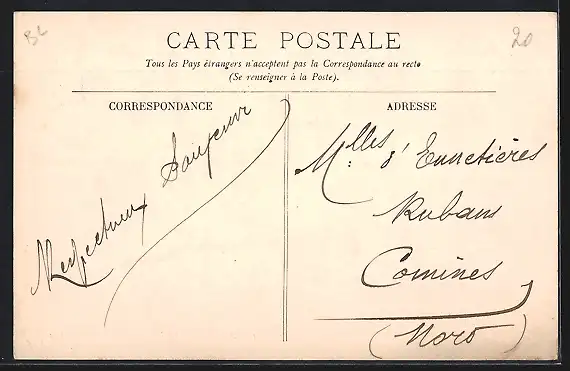 BL
20
CARTE POSTALE
Tous les Pays étrangers n'acceptent pas la Correspondance au recto
(Se renseigner à la Poste).
CORRESPONDANCE
ADRESSE
Respectueux Souvenir
Melles d'
Rubans
Comines
(Nord)